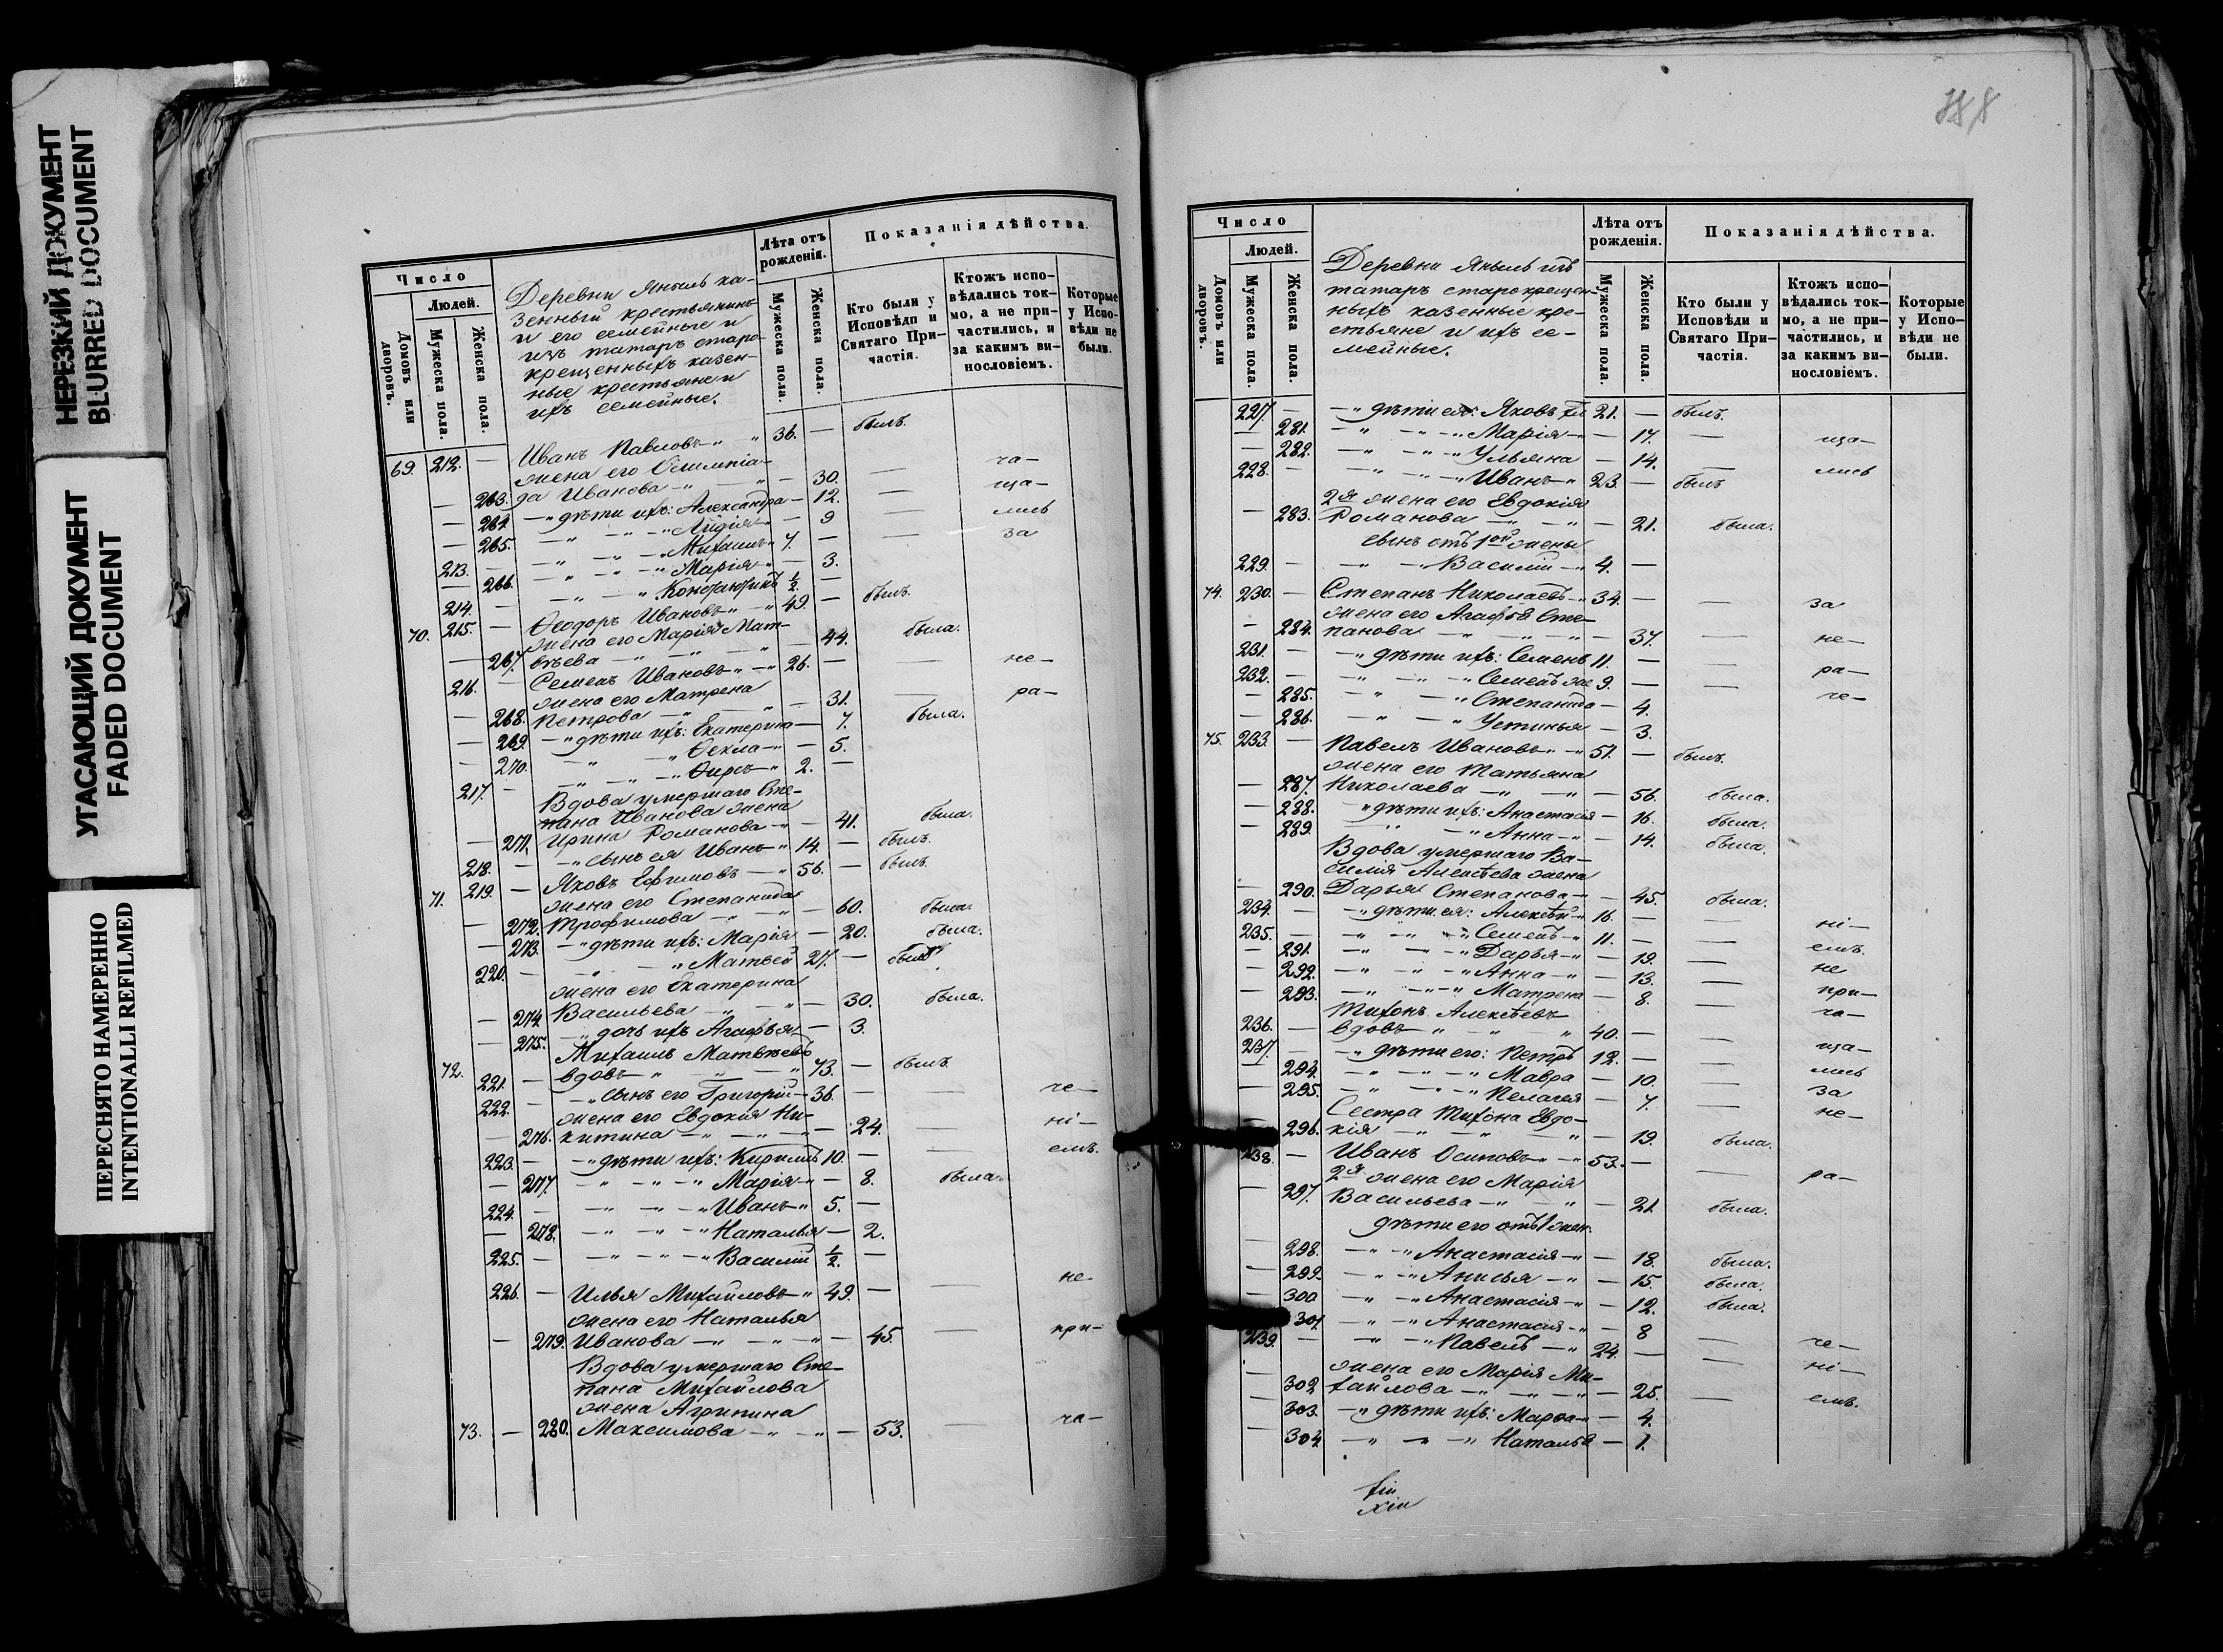 НЕРЕЗКИЙ ДОКУМЕНТ
BLURRED DOCUMENT
УГАСАЮЩИЙ ДОКУМЕНТ
FADED DOCUMENT
ПЕРЕСНЯТО НАМЕРЕННО
INTENTIONALLI REFILMED
Число
Людей.
Домовъ или дворовъ.
Мужеска пола.
Женска пола.
Деревни Яныль ка-
зенный крестьянинъ
и его семейные и
изъ татаръ старо-
крещенныхъ казен-
ные крестьяне и
ихъ семейные.
Лѣта отъ рожденія.
Мужеска пола.
Женска пола.
Показанія дѣйства.
Кто были у Исповѣди и Святаго При-частія.
Ктожъ испо-вѣдались ток-мо, а не при-частились, и за какимъ ви-нословіемъ.
Которые у Испо-вѣди не были.
69. 212. — Иванъ Павловъ 36. — былъ.
жена его Олимпіа- ча-
— 263. да Иванова — 30. — ща-
— 264. дѣти ихъ: Александра — 12. — лись
— 265. Лидія — 9 — за
213. — Михаилъ 7. —
— 266. Марія — 3.
214. — 1/2. —
70. 215. — Ѳеодоръ Ивановъ 49. — былъ.
жена его Марія Мат-
— 267. вѣева — 44. была.
216. — Семенъ Ивановъ 26. — — не-
жена его Матрена
— 268. Петрова — 31. — ра-
— 269. дѣти ихъ: Екатерина — 7. была.
— 270. Ѳекла — 5.
217. — Ѳирсъ 2. —
Вдова умершаго Сте-
пана Иванова жена
— 271. Ирина Романова — 41. была.
218. — сынъ ея Иванъ 14. — былъ.
71. 219. — Яковъ Ефимовъ 56. — былъ.
жена его Степанида
— 272. Трофимова — 60. была.
— 273. дѣти ихъ: Марія — 20. была.
220. — Матвей 27. — былъ
жена его Екатерина
— 274. Васильева — 30. была.
— 275. дочь ихъ Агафья — 3.
Михаилъ Матвѣевъ
72. 221. — вдовъ 73. — былъ.
222. — сынъ его Григорій 36. — — че-
жена его Евдокія Ни-
— 276. китина — 24. — ні-
223. — дѣти ихъ: Кирилъ 10. — — емъ.
— 277. Марія — 8. была.
224. — Иванъ 5. —
— 278. Наталья — 2.
225. — Василій 1/2. —
226. — Илья Михайловъ 49. — — не-
жена его Наталья
— 279. Иванова — 45. — при-
Вдова умершаго Сте-
пана Михайлова
жена Агрипина
73. — 280. Максимова — 53. — ча-
Число
Людей.
Домовъ или дворовъ.
Мужеска пола.
Женска пола.
Деревни Яныль изъ
татаръ старокрещен-
ныхъ казенные кре-
стьяне и ихъ се-
мейные.
Лѣта отъ рожденія.
Мужеска пола.
Женска пола.
Показанія дѣйства.
Кто были у Исповѣди и Святаго При-частія.
Ктожъ испо-вѣдались ток-мо, а не при-частились, и за какимъ ви-нословіемъ.
Которые у Испо-вѣди не были.
227. — дѣти ея: Яковъ 21. — былъ.
— 281. Марія — 17. — ща-
— 282. Ульяна — 14. — лись
228. — Иванъ 23. — былъ
2я жена его Евдокія
— 283. Романова — 21. была.
сынъ отъ 1ой жены
229. — Василій 4. —
74. 230. — Степанъ Николаевъ 34. — — за
жена его Агафья Сте-
— 284. панова — 37. — не-
231. — дѣти ихъ: Семенъ 11. — — ра-
232. — Семенъ же 9. — — че-
— 285. Степанида — 4.
— 286. Устинья — 3.
75. 233. — Павелъ Ивановъ 51. — былъ.
жена его Татьяна
— 287. Николаева — 56. была.
— 288. дѣти ихъ: Анастасія — 16. была.
— 289. Анна — 14. была.
Вдова умершаго Ва-
силія Алексѣева жена
— 290. Дарья Степанова — 45. была.
234. — дѣти ея: Алексѣй 16. — — ні-
235. — Семенъ 11. — — емъ.
— 291. Дарья — 19. — не
— 292. Анна — 13. — при-
— 293. Матрена — 8. — ча-
Тихонъ Алексѣевъ
236. — вдовъ 40. — — ща-
237. — дѣти его: Петръ 12. — — лись
— 294. Мавра — 10. — за
— 295. Пелагея — 7. — не-
Сестра Тихона Евдо-
296. кія — 19. была.
238. — Иванъ Осиповъ 53. — — ра-
2я жена его Марія
— 297. Васильева — 21. была.
дѣти его отъ 1 жен.
— 298. Анастасія — 18. была.
— 299. Анисья — 15. была.
— 300 Анастасія — 12. была.
301. Анастасія — 8 — че-
239. — Павелъ 24. — — ні-
жена его Марія Ми-
— 302 хайлова — 25. — емъ.
— 303. дѣти ихъ: Марѳа — 4.
— 304. Наталья — 1.